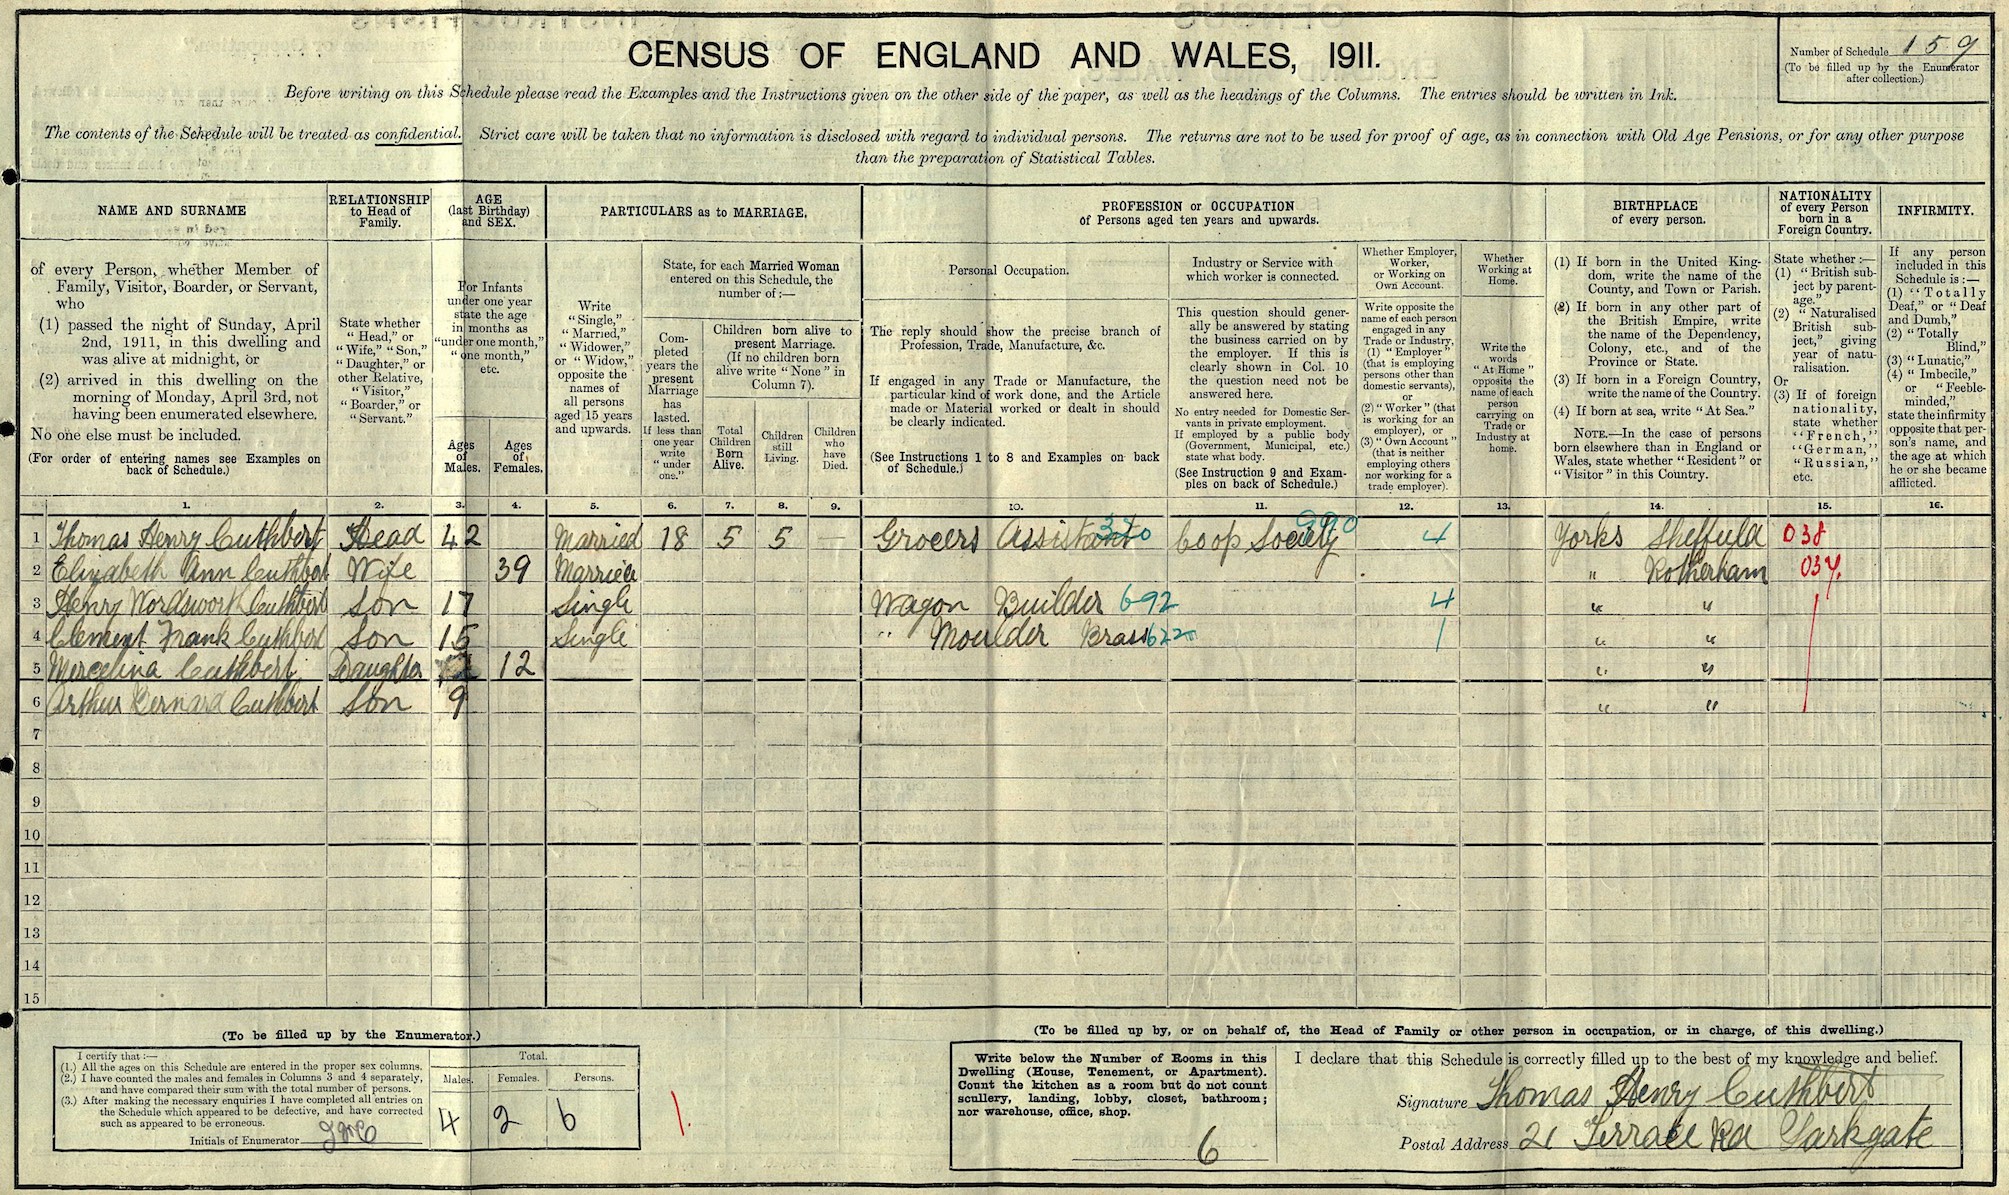 CENSUS OF ENGLAND AND WALES, 1911.
Number of Schedule 159
(To be filled up by the Enumerator
after collection.)
Before writing on this Schedule please read the Examples and the Instructions given on the other side of the paper, as well as the headings of the Columns. The entries should be written in Ink.
The contents of the Schedule will be treated as confidential. Strict care will be taken that no information is disclosed with regard to individual persons. The returns are not to be used for proof of age, as in connection with Old Age Pensions, or for any other purpose
than the preparation of Statistical Tables.
NAME AND SURNAME
of every Person, whether Member of
Family, Visitor, Boarder, or Servant,
who
(1) passed the night of Sunday, April
2nd, 1911, in this dwelling and
was alive at midnight, or
(2) arrived in this dwelling on the
morning of Monday, April 3rd, not
having been enumerated elsewhere.
No one else must be included.
(For order of entering names see Examples on
back of Schedule.)
RELATIONSHIP
to Head of
Family.
State whether
"Head," or
"Wife," "Son,"
"Daughter," or
other Relative,
"Visitor,"
"Boarder," or
"Servant."
AGE
(last Birthday)
and SEX.
For Infants
under one year
state the age
in months as
"under one month,"
"one month,"
etc.
Ages
of
Males.
Ages
of
Females.
PARTICULARS as to MARRIAGE.
Write
"Single,"
"Married,"
"Widower,"
or "Widow,"
opposite the
names of
all persons
aged 15 years
and upwards.
State, for each Married Woman
entered on this Schedule, the
number of:—
Com-
pleted
years the
present
Marriage
has
lasted.
If less than
one year
write
"under
one."
Children born alive to
present Marriage.
(If no children born
alive write "None" in
Column 7).
Total
Children
Born
Alive.
Children
still
Living.
Children
who
have
Died.
PROFESSION or OCCUPATION
of Persons aged ten years and upwards.
Personal Occupation.
The reply should show the precise branch of
Profession, Trade, Manufacture, &c.
If engaged in any Trade or Manufacture, the
particular kind of work done, and the Article
made or Material worked or dealt in should
be clearly indicated.
(See Instructions 1 to 8 and Examples on back
of Schedule.)
Industry or Service with
which worker is connected.
This question should gener-
ally be answered by stating
the business carried on by
the employer. If this is
clearly shown in Col. 10
the question need not be
answered here.
No entry needed for Domestic Ser-
vants in private employment.
If employed by a public body
(Government, Municipal, etc.)
state what body.
(See Instruction 9 and Exam-
ples on back of Schedule.)
Whether Employer,
Worker,
or Working on
Own Account.
Write opposite the
name of each person
engaged in any
Trade or Industry,
(1) "Employer"
(that is employing
persons other than
domestic servants),
or
(2) "Worker" (that
is working for an
employer), or
(3) "Own Account"
(that is neither
employing others
nor working for a
trade employer).
Whether
Working at
Home.
Write the
words
"At Home"
opposite the
name of each
person
carrying on
Trade or
Industry at
home.
BIRTHPLACE
of every person.
(1) If born in the United King-
dom, write the name of the
County, and Town or Parish.
(2) If born in any other part of
the British Empire, write
the name of the Dependency,
Colony, etc., and of the
Province or State.
(3) If born in a Foreign Country,
write the name of the Country.
(4) If born at sea, write "At Sea."
NOTE.—In the case of persons
born elsewhere than in England or
Wales, state whether "Resident" or
"Visitor" in this Country.
NATIONALITY
of every Person
born in a
Foreign Country.
State whether:—
(1) "British sub-
ject by parent-
age."
(2) "Naturalised
British sub-
ject," giving
year of natu-
ralisation.
Or
(3) If of foreign
nationality,
state whether
"French,"
"German,"
"Russian,"
etc.
INFIRMITY.
If any person
included in this
Schedule is:—
(1) "Totally
Deaf," or "Deaf
and Dumb,"
(2) "Totally
Blind,"
(3) "Lunatic,"
(4) "Imbecile,"
or "Feeble-
minded,"
state the infirmity
opposite that per-
son's name, and
the age at which
he or she became
afflicted.
1. 2. 3. 4. 5. 6. 7. 8. 9. 10. 11. 12. 13. 14. 15. 16.
1 Thomas Henry Cuthbert Head 42 Married 18 5 5 — Grocers Assistant 340 Coop Society 990 4 Yorks Sheffield 038
2 Elizabeth Ann Cuthbert Wife 39 Married " Rotherham 037.
3 Henry Wordsworth Cuthbert Son 17 Single Wagon Builder 692 4 " "
4 Clement Frank Cuthbert Son 15 Single " Moulder Brass 622 1 " "
5 Mercelina Cuthbert Daughter 12 " "
6 Arthur Bernard Cuthbert Son 9 " "
7
8
9
10
11
12
13
14
15
(To be filled up by the Enumerator.)
I certify that:—
(1.) All the ages on this Schedule are entered in the proper sex columns.
(2.) I have counted the males and females in Columns 3 and 4 separately,
and have compared their sum with the total number of persons.
(3.) After making the necessary enquiries I have completed all entries on
the Schedule which appeared to be defective, and have corrected
such as appeared to be erroneous.
Initials of Enumerator
Total.
Males. Females. Persons.
4 2 6
1.
(To be filled up by, or on behalf of, the Head of Family or other person in occupation, or in charge, of this dwelling.)
Write below the Number of Rooms in this
Dwelling (House, Tenement, or Apartment).
Count the kitchen as a room but do not count
scullery, landing, lobby, closet, bathroom;
nor warehouse, office, shop.
6
I declare that this Schedule is correctly filled up to the best of my knowledge and belief.
Signature Thomas Henry Cuthbert
Postal Address 21 Terrace Rd Parkgate